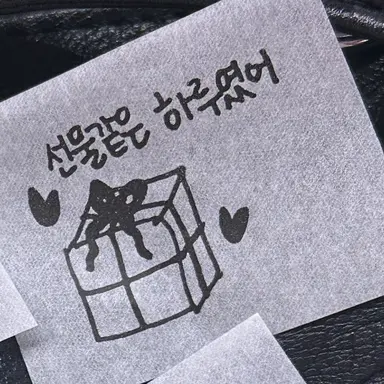 선물같은 하루였어